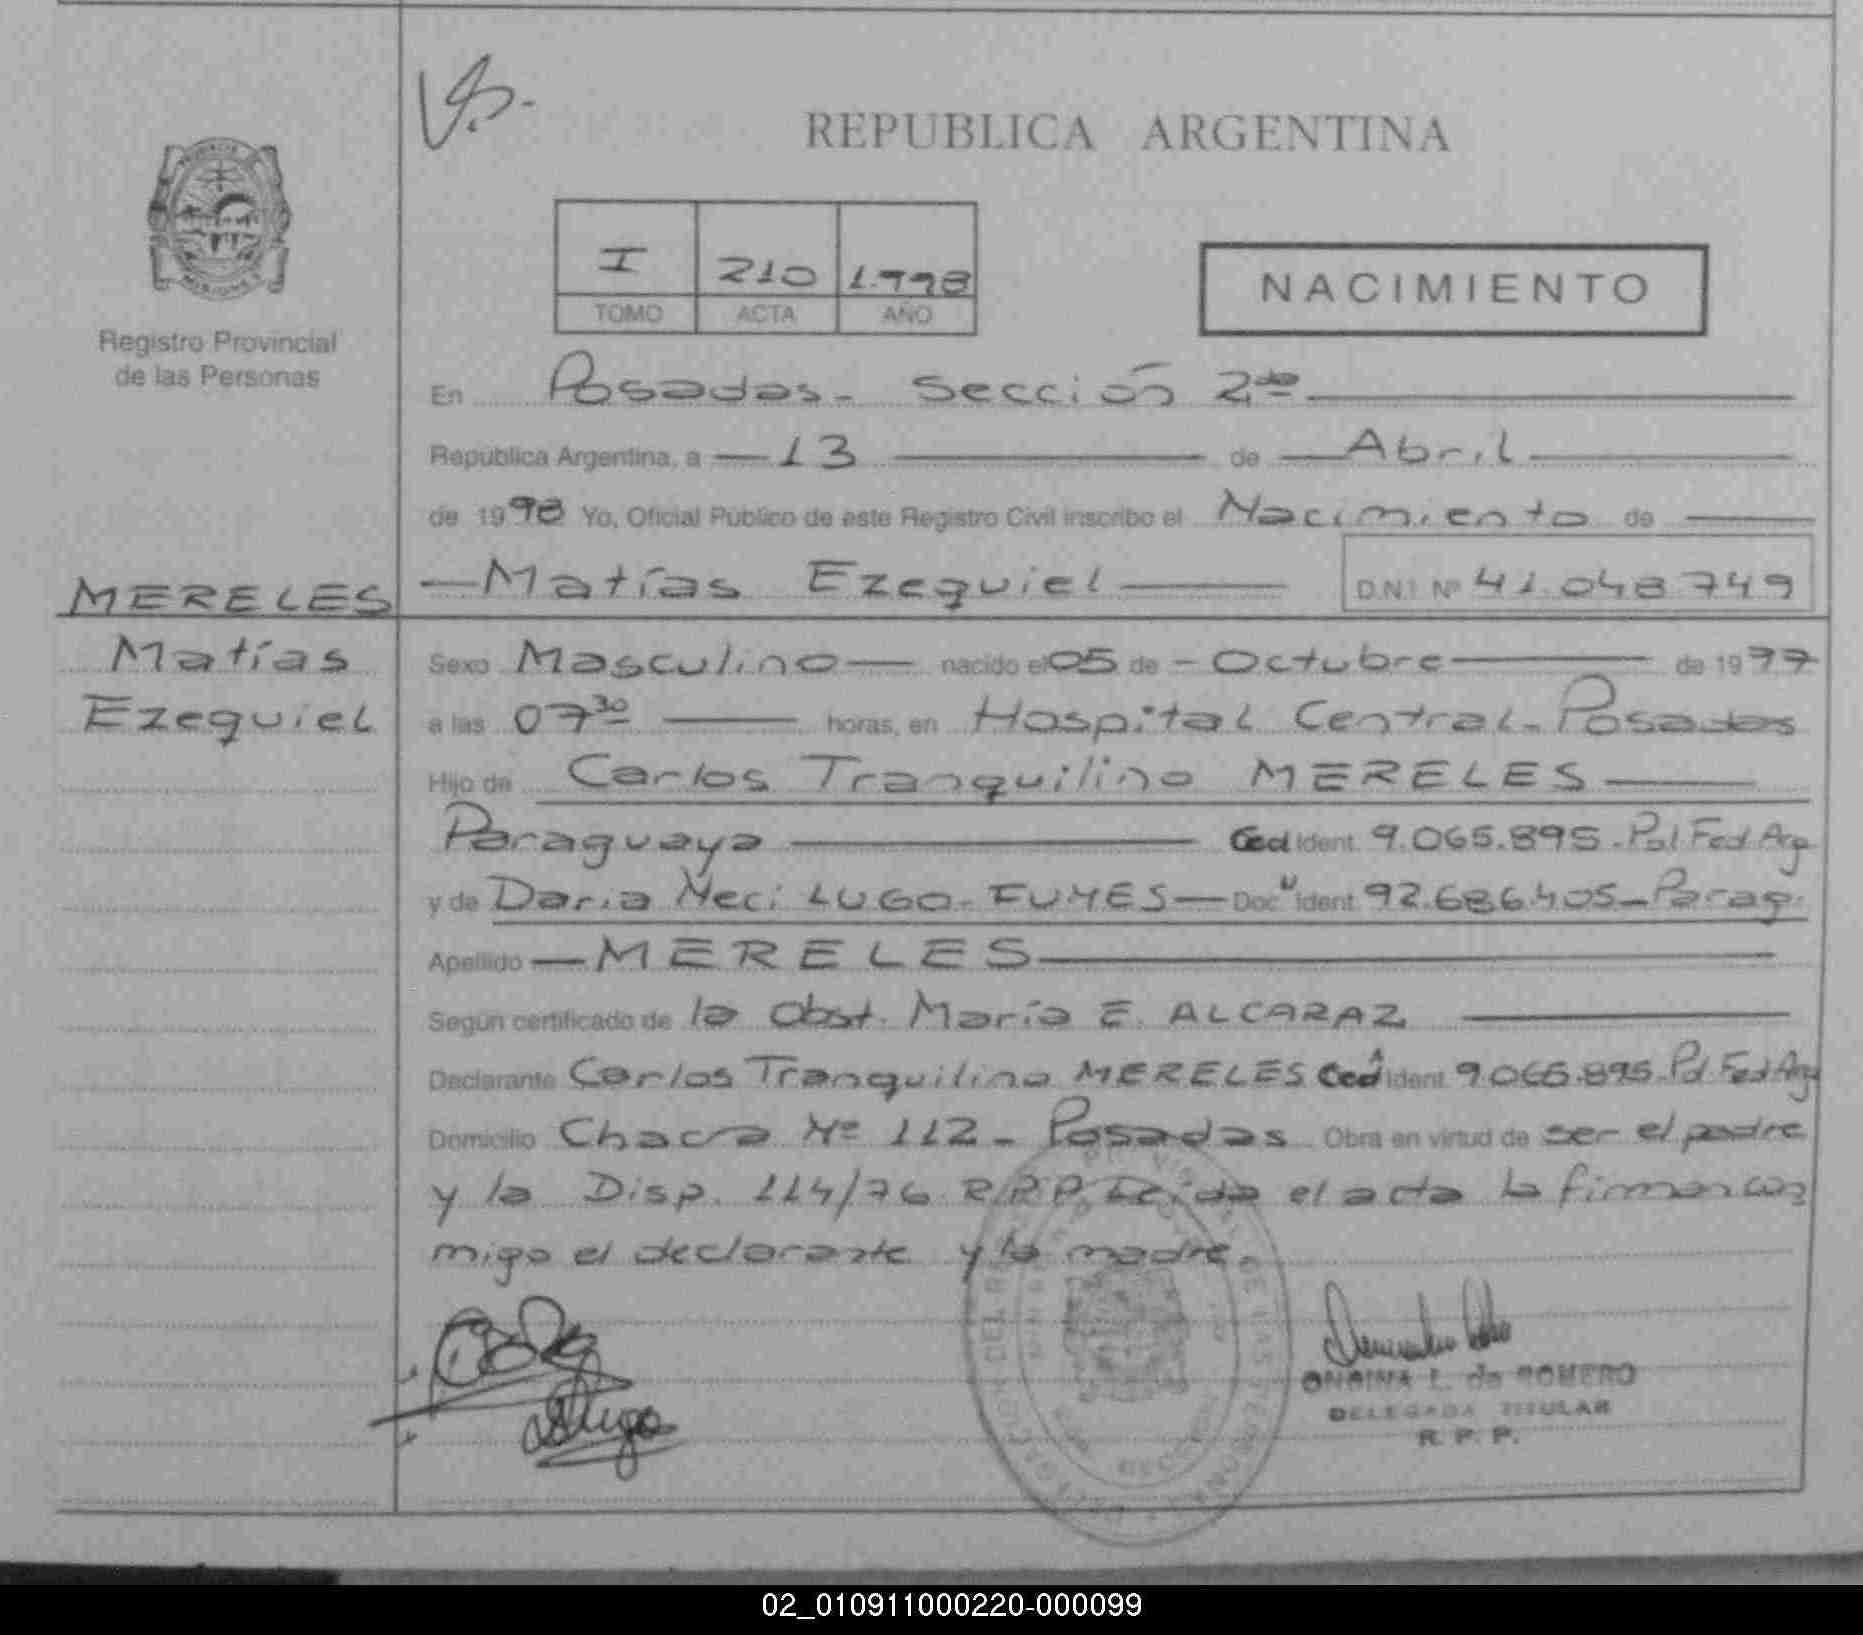 REPUBLICA ARGENTINA
I 210 1.998
TOMO ACTA AÑO
NACIMIENTO
Registro Provincial
de las Personas
En Posadas - Sección 2da
República Argentina, a 13 de Abril
de 1998 Yo, Oficial Público de este Registro Civil inscribo el Nacimiento de
MERELES
Matías
Ezequiel
Matías Ezequiel D.N.I. Nº 41.048.749
Sexo Masculino nacido el 05 de Octubre de 1977
a las 07 30 horas, en Hospital Central - Posadas
Hijo de Carlos Tranquilino MERELES
Paraguaya Ced Ident. 9.065.895 - Pol Fed Arg
y de Daria Neci LUGO - Doc Ident. 92.686.405 - Parag.
Apellido MERELES
Según certificado de la Obst. María E. ALCARAZ
Declarante Carlos Tranquilino MERELES Ced Ident. 9.065.895 - Pol Fed Arg
Domicilio Chacra Nº 112 - Posadas Obra en virtud de ser el padre
y la Disp. 114/76 R.P.P. Leída el acta la firman con
migo el declarante y la madre.
L. de ROMERO
DELEGADA TITULAR
R. P. P.
02_010911000220-000099